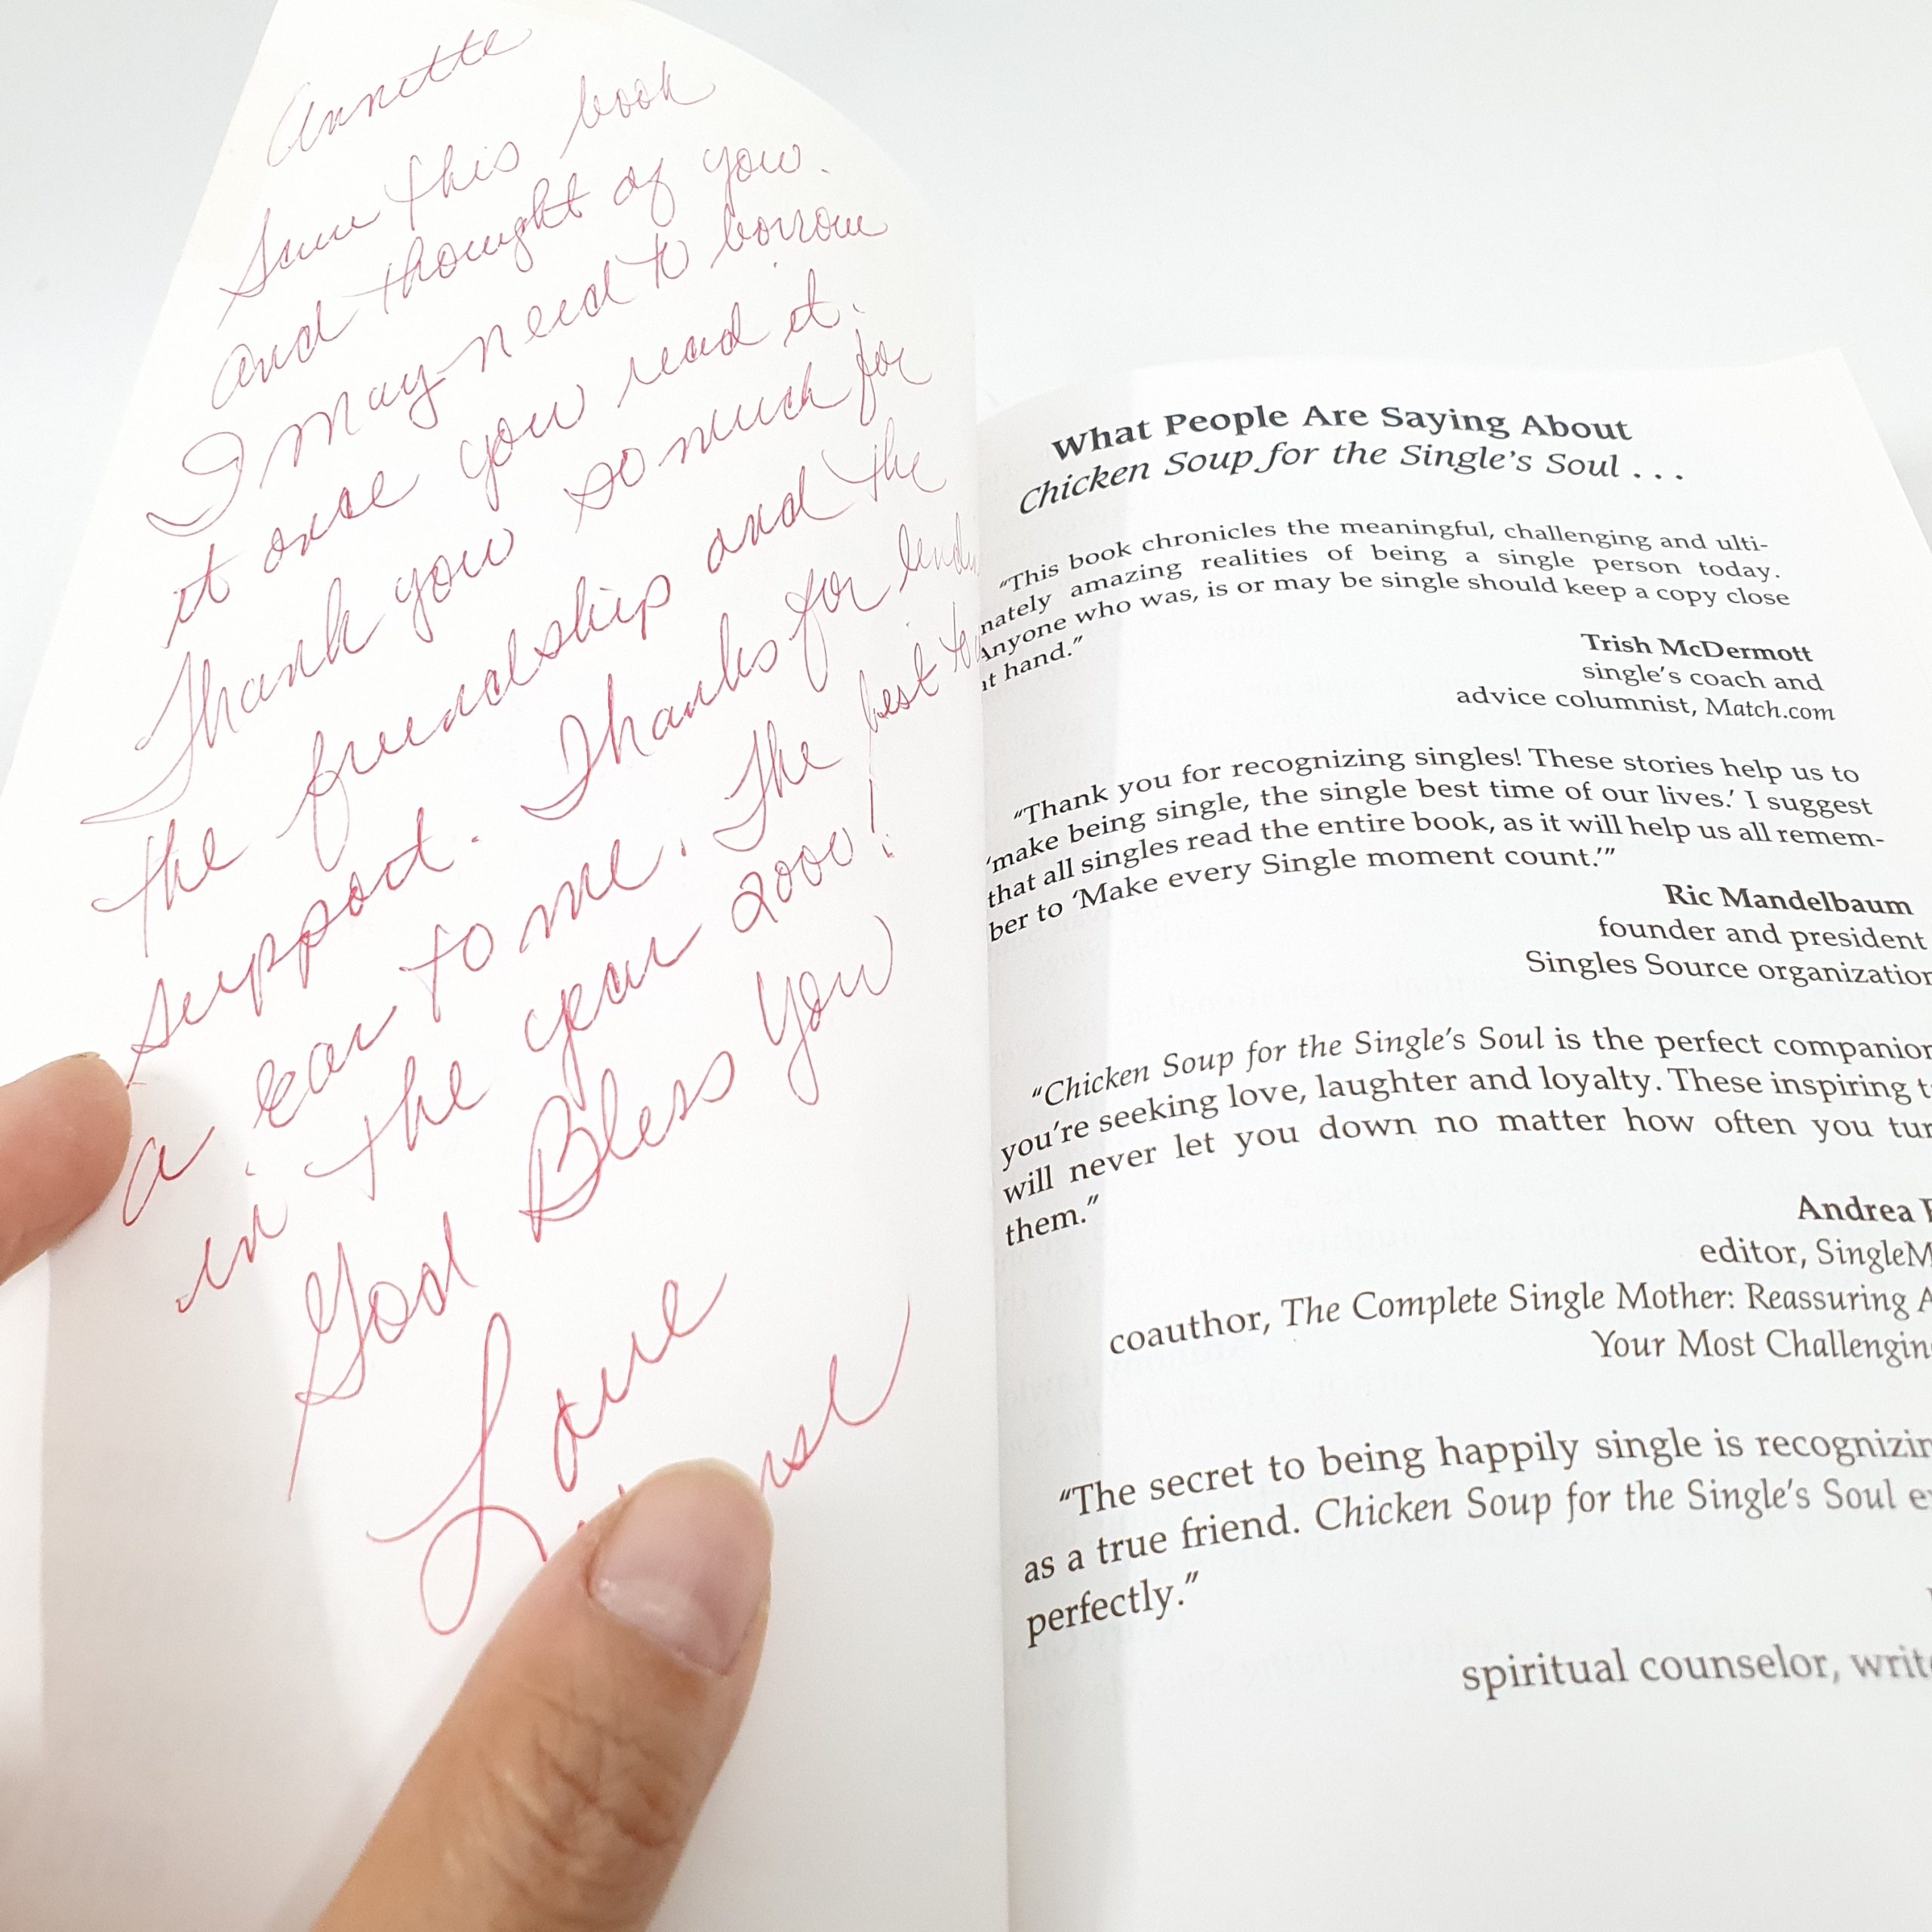 Annette
Saw this book
and thought of you.
I may need to borrow
it once you read it.
Thank you so much for
the friendship and the
support. Thanks for
a ear to me. The best to
in the year 2000!
God Bless You
Love
What People Are Saying About
Chicken Soup for the Single's Soul . . .
"This book chronicles the meaningful, challenging and ulti-
nately amazing realities of being a single person today.
Anyone who was, is or may be single should keep a copy close
at hand."
Trish McDermott
single's coach and
advice columnist, Match.com
"Thank you for recognizing singles! These stories help us to
'make being single, the single best time of our lives.' I suggest
that all singles read the entire book, as it will help us all remem-
ber to 'Make every Single moment count.'"
Ric Mandelbaum
founder and president
Singles Source organization
"Chicken Soup for the Single's Soul is the perfect companion
you're seeking love, laughter and loyalty. These inspiring
will never let you down no matter how often you
them."
Andrea
editor,
coauthor, The Complete Single Mother: Reassuring
Your Most
"The secret to being happily single is
as a true friend. Chicken Soup for the Single's Soul
perfectly."
spiritual counselor,